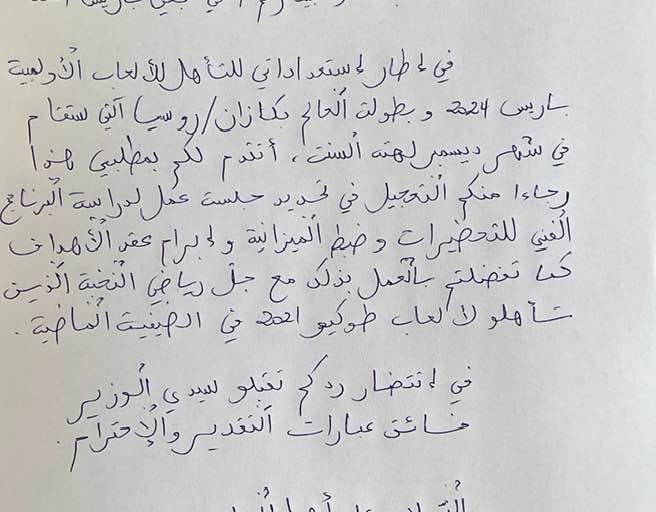 في إطار إستعداداتي للتأهل للألعاب الأولمبية
باريس 2024 و بطولة العالم بكازان/روسيا التي ستقام
في شهر ديسمبر لهته السنة، أتقدم لكم بمطلبي هذا
رجاءا منكم التعجيل في تحديد جلسة عمل لدراسة البرنامج
الفني للتحضيرات و ضبط الميزانية و إبرام عقد الأهداف
كما تفضلتم بالعمل بذلك مع جل رياضي النخبة الذين
تأهلو لألعاب طوكيو 2021 في الصيفية الماضية .
في إنتضار ردكم تقبلو سيدي الوزير
فائق عبارات التقدير والإحترام .